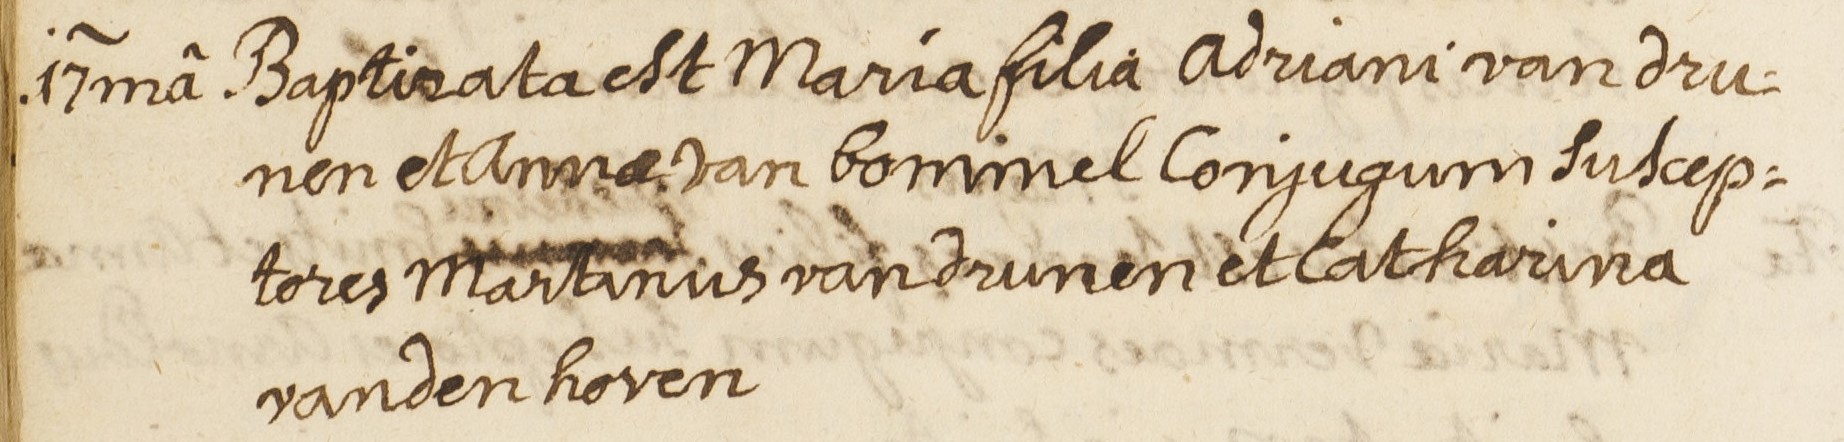 17mã Baptizata est Maria filia Adriani van dru=
nen et Annæ van bommel Conjugum Suscep=
tores Martinus van drunen et Catharina
vanden hoven